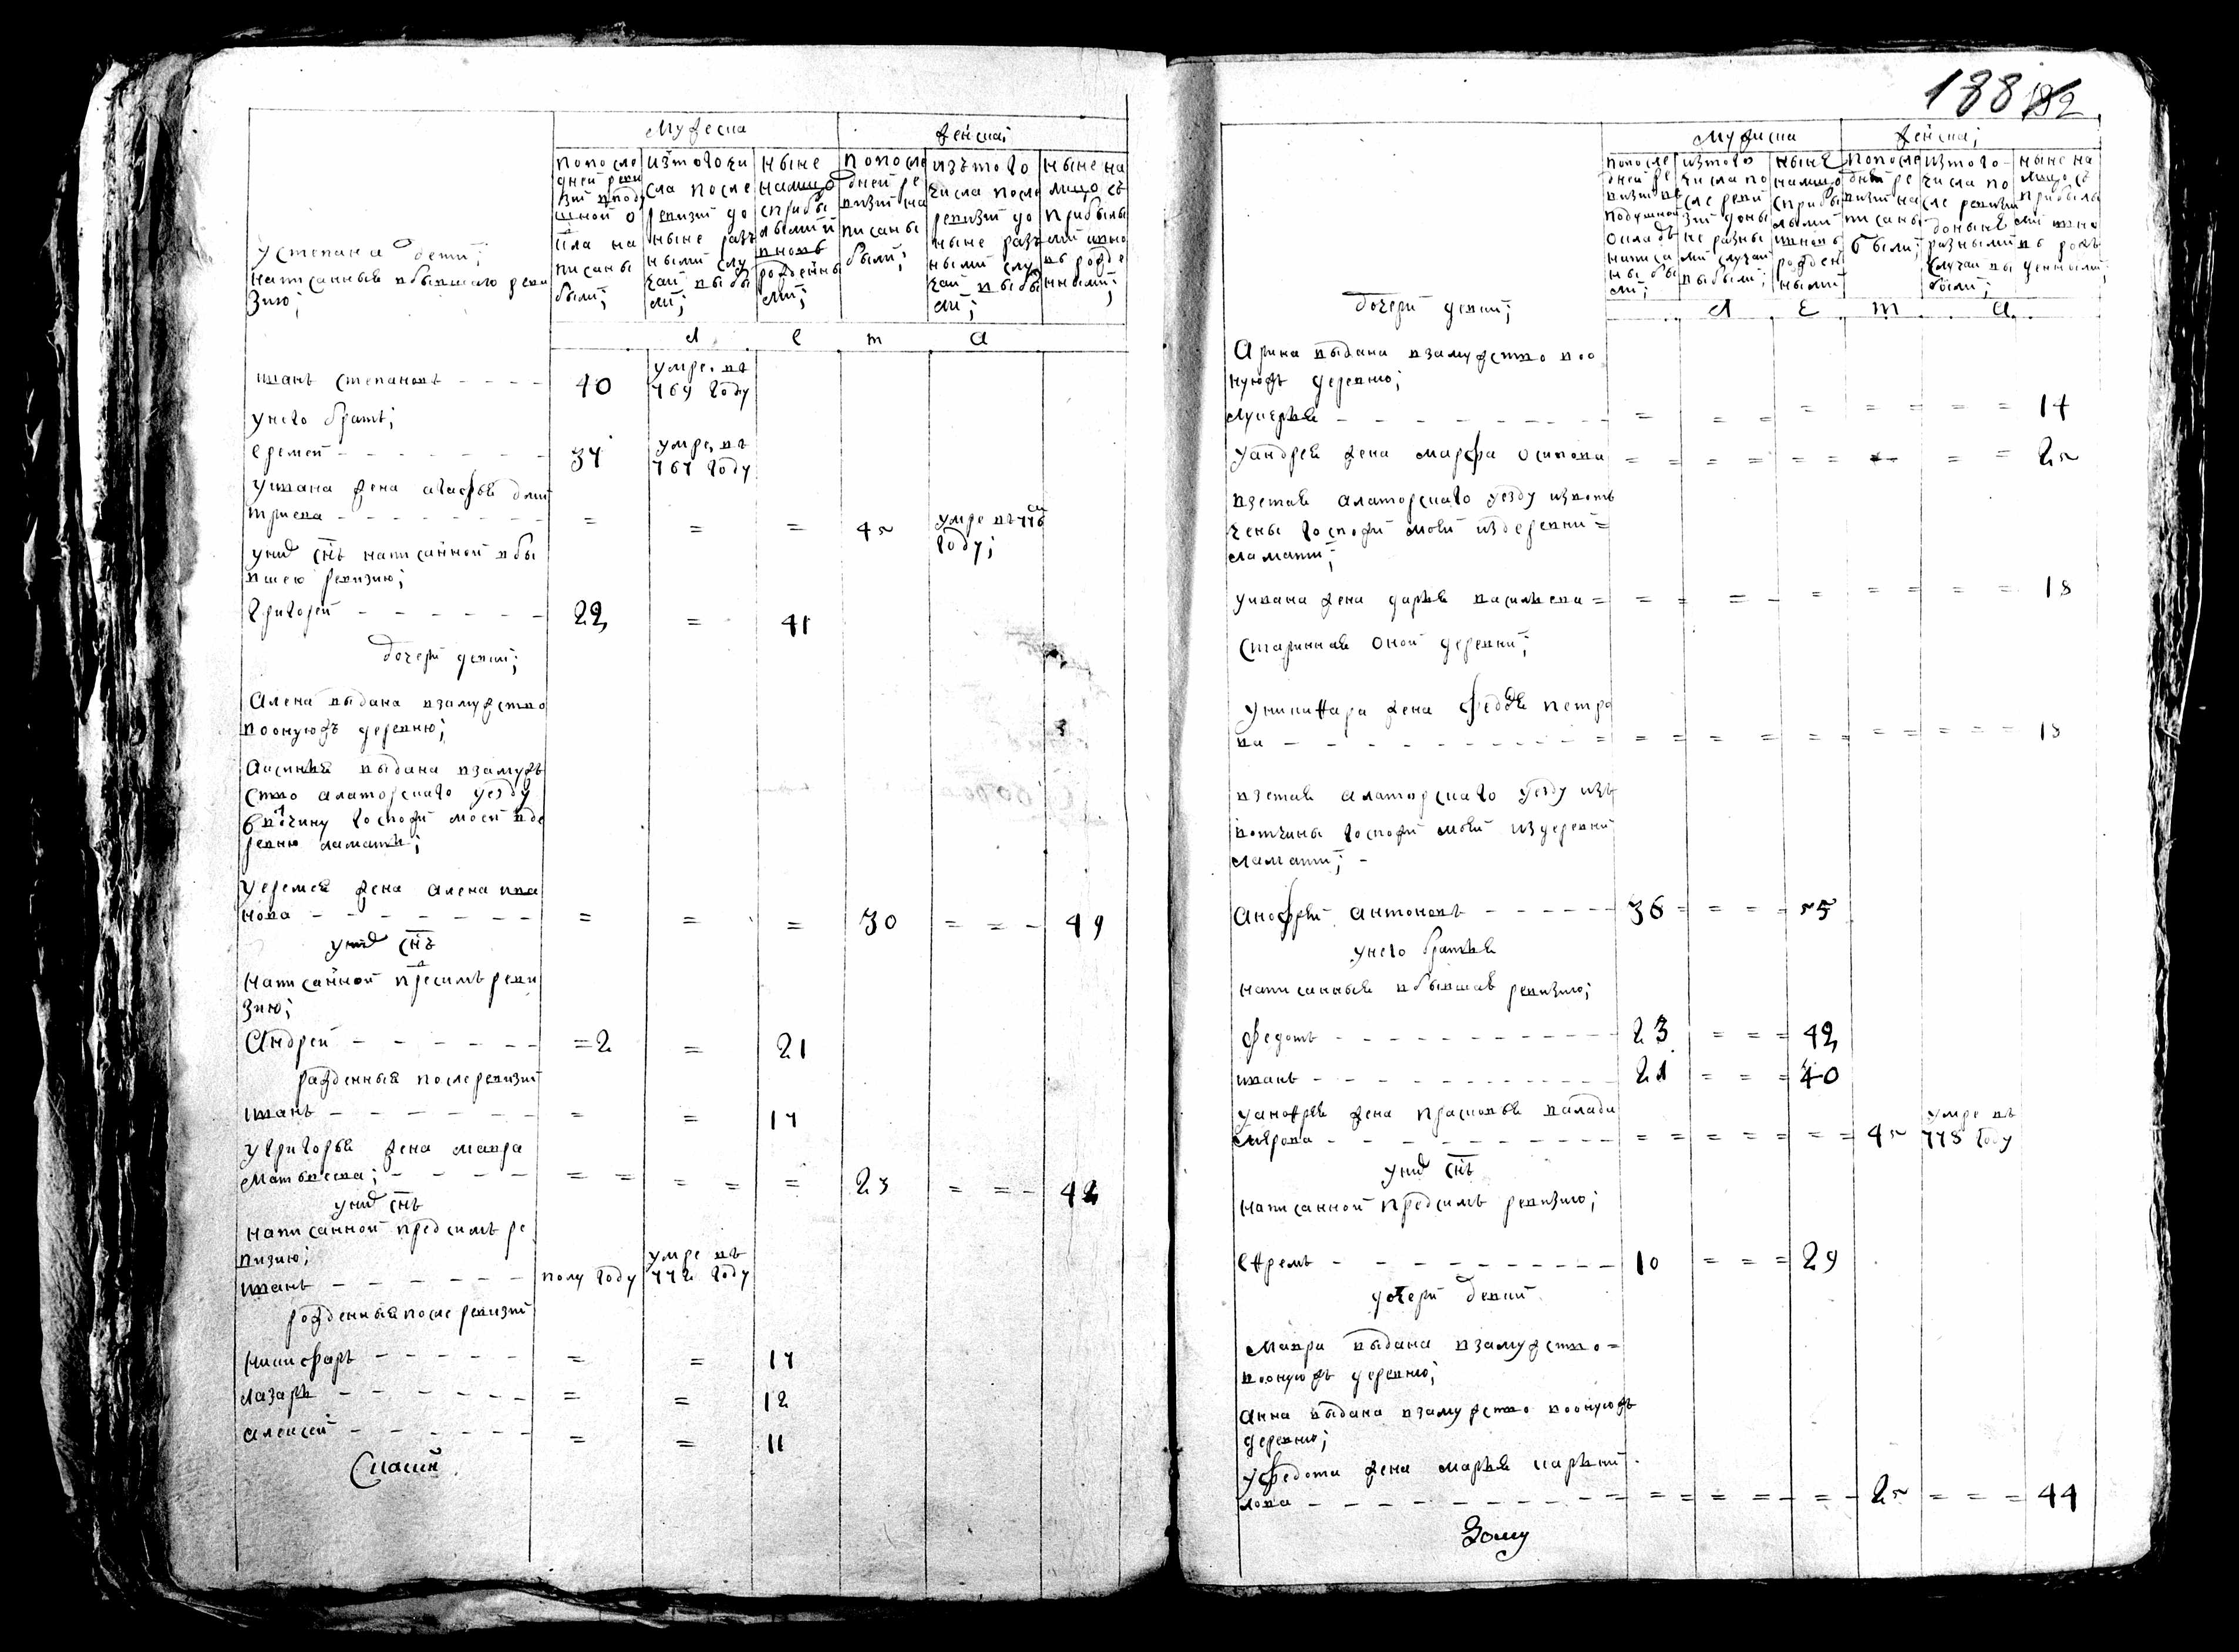 мужеска
женска;
попосле
дней реви
зии вподу
шной о
кла на
писаны
были;
изтогочи
сла после
ревизии до
ныне раз
ными слу
чаи выбы
ли;
ныне
налицо
сприбы
лыми и
вновь
рожденны
ми;
попосле
дней ре
визии на
писаны
были;
изътого
числа посл
ревизии до
ныне раз
ными слу
чаи выбы
ли;
ныне на
лицо съ
прибылы
ми ивно
въ рожде
нными;
л е т а
у степана дети;
написанныя вбывшую реви
зию;
иванъ степановъ 40 умре въ
769 году
унего братъ;
еремей 37 умре въ
767 году
уивана жена агафья дми
триева = = = 45 умре въ 776
году;
уних снъ написанной вбы
вшею ревизию;
григорей 22 = 41
дочери девки;
Алена выдана взамужство
воонуюжъ деревню;
Аксинья выдана взамужъ
ство алаторскаго уезду
ввотчину госпожи моей вде
ревню ламаты;
уеремея жена алена ива
нова = = = 30 = = 49
уних снъ
написанной пресимъ реви
зию;
Андрей = 2 = 21
рожденныя послеревизии
иванъ = = 17
угригорья жена мавра
матвеева; = = = = = 23 = = 42
уних снъ
написанной предсимъ ре
визию;
иванъ полу году умре въ
772 году
рожденныя после ревизии
никифаръ = = 17
лазарь = = 12
алексей = = 11
138 132
мужеска
женска;
попосле
дней ре
визии въ
подушной
окладъ
написа
ны бы
ли;
изтого
числа по
сле реви
зии доны
не разны
ми случаи
выбыли;
ныне
налицо
сприбы
лыми
ивновь
рожден
ными
попосле
дней ре
визии на
писаны
были;
изтого
числа по
сле ревизи
доныне
разными
случаи вы
были;
ныне на
лицо съ
прибылы
ми ивно
въ рож
денными;
л е т а
дочери девки;
Арина выдана взамужство воо
нуюжъ деревню;
лукерья = = = = = = = = 14
уандрея жена марфа осипова = = = = = = = = 25
взетая алаторскаго уезду извот
чены госпожи моей издеревни
ламати;
уивана жена дарья васильева = = = = = = = = 18
старинная оной деревни;
уникифара жена федося петро
ва = = = = = = = = 18
взетая алаторскаго уезду изъ
вотчины госпожи моей издеревни
ламати;
анофрей антоновъ 36 = = = 55
унего братья
написанныя вбывшую ревизию;
федотъ 23 = = = 42
иванъ 21 = = = 40
уанофрея жена прасковья
= = = = = = = 45 умре въ
778 году
уних снъ
написанной предсимъ ревизию;
ефремъ 10 = = = 29
дочери девки
Мавра выдана взамужство
воонуюжъ деревню;
анна выдана взамужство воонуюжъ
деревню;
уфедота жена марья кирьи
лова = = = = = = = 25 = = = 44